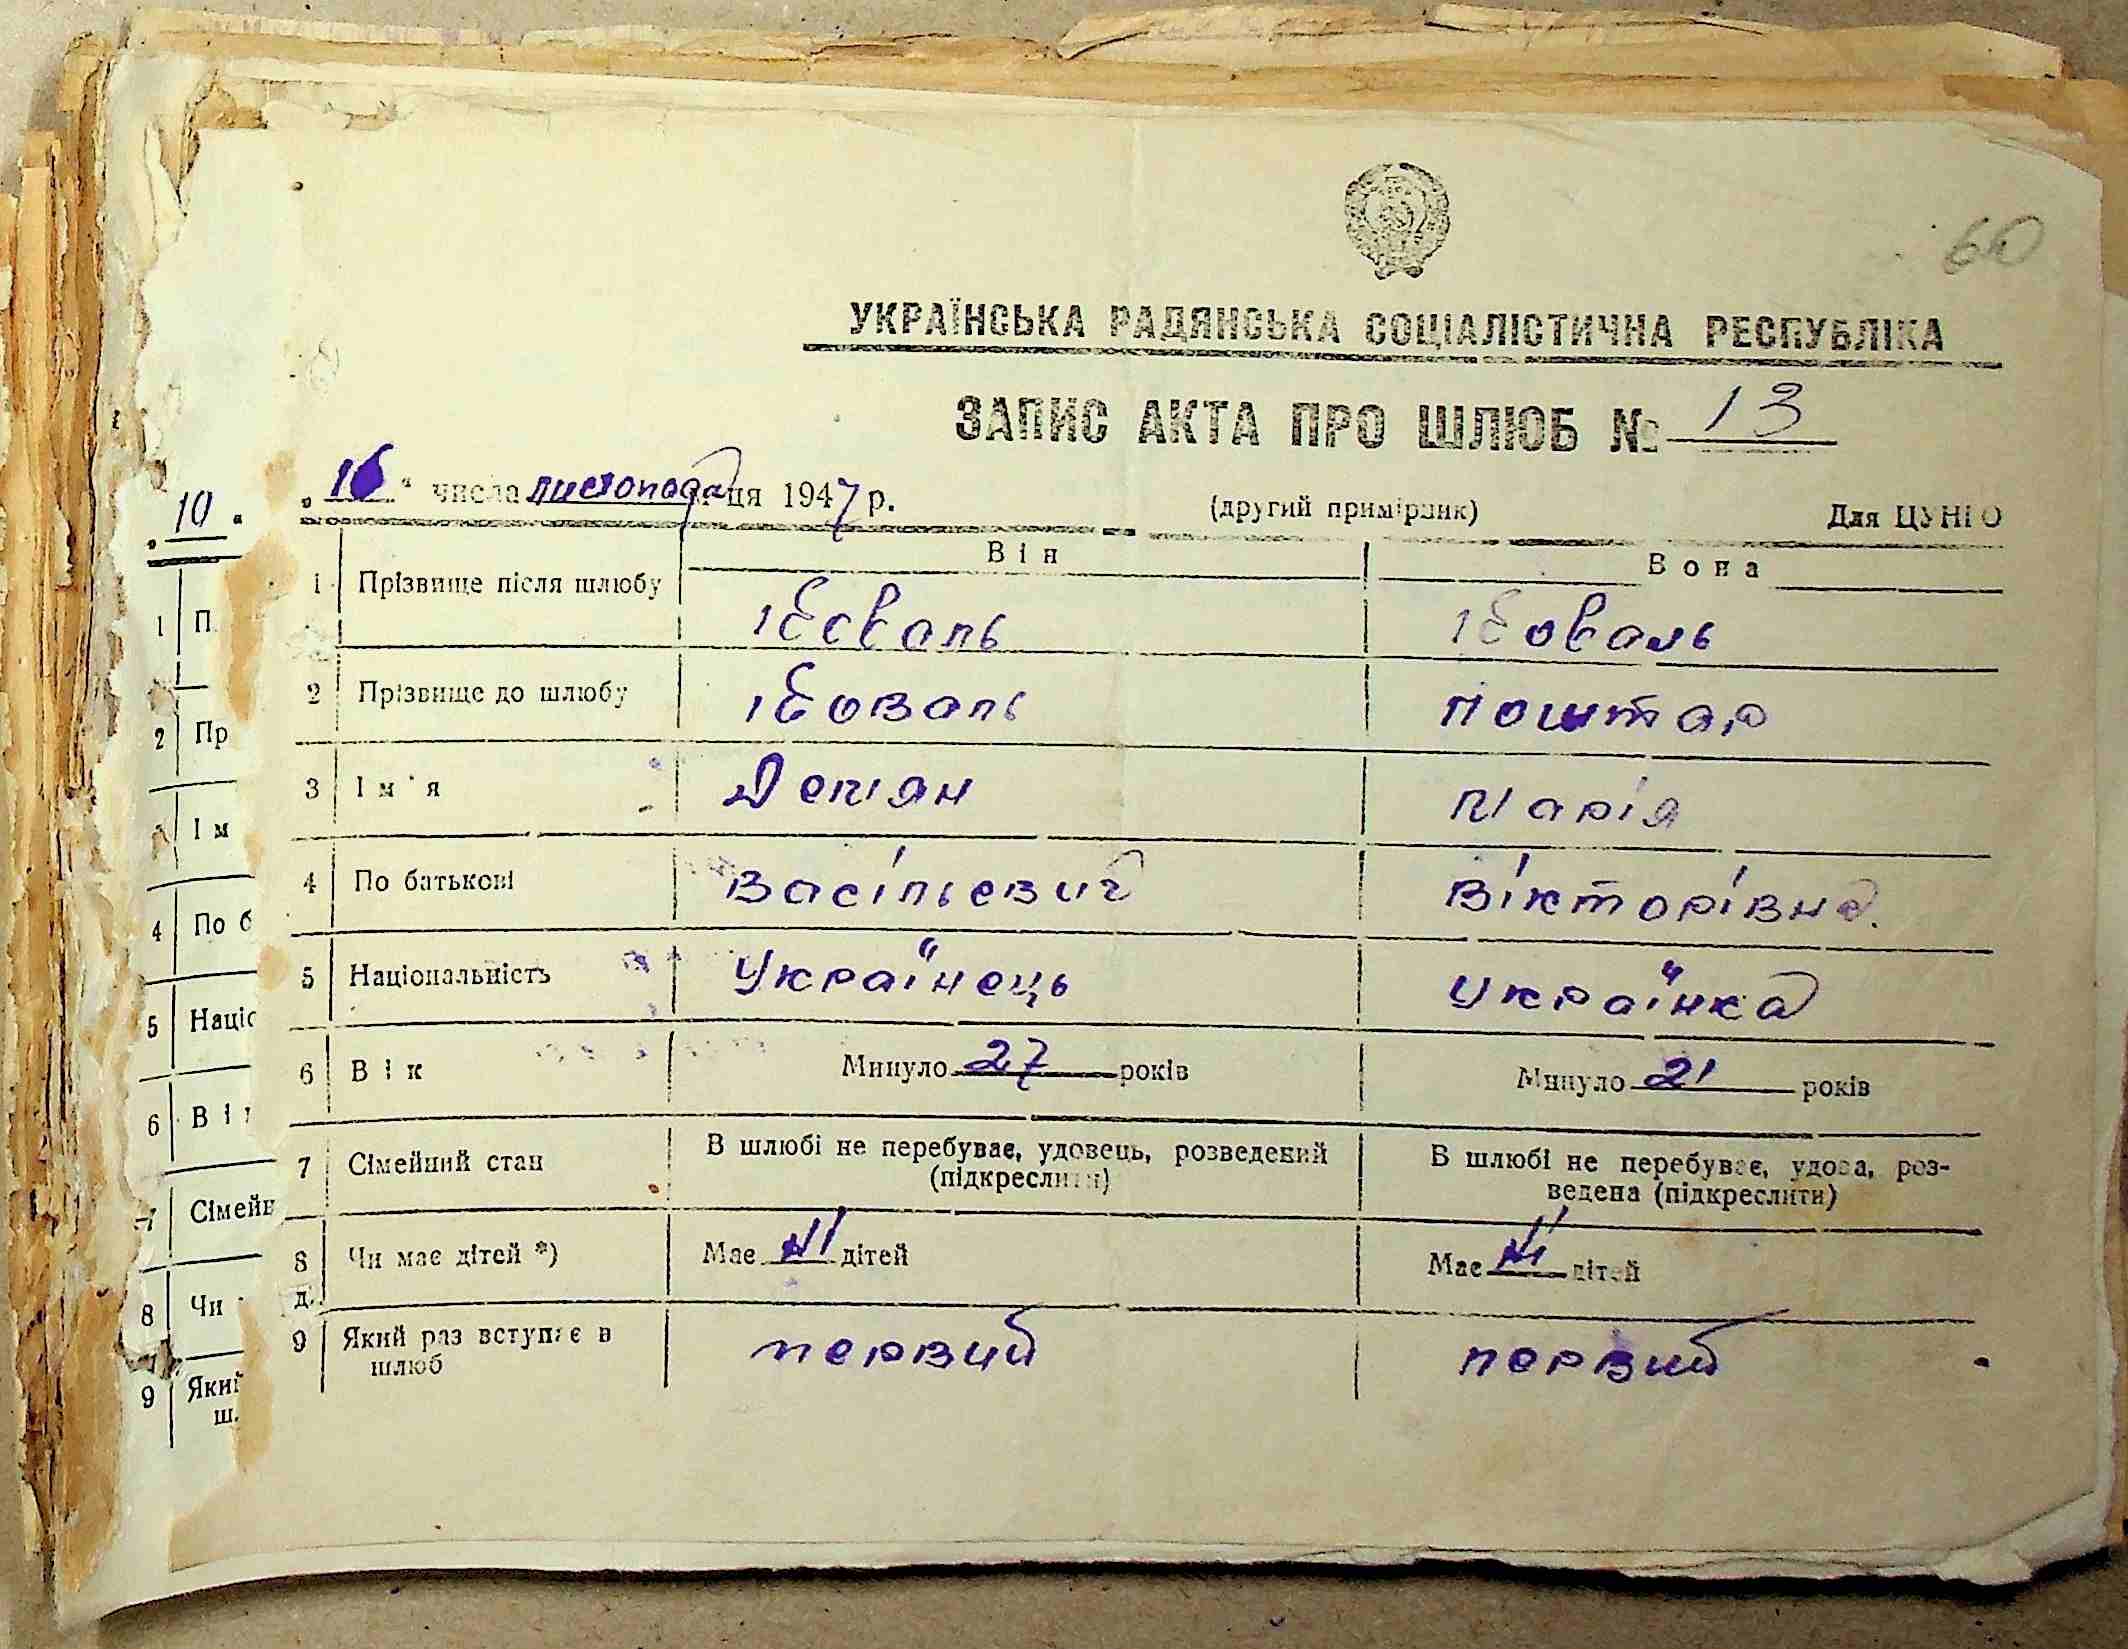 60
УКРАЇНСЬКА РАДЯНСЬКА СОЦІАЛІСТИЧНА РЕСПУБЛІКА
ЗАПИС АКТА ПРО ШЛЮБ № 13
„16“ числа листопада ця 1947 р. (другий примірник) Для ЦУНГО
Він Вона
1 Прізвище після шлюбу Коваль Коваль
2 Прізвище до шлюбу Коваль Поштар
3 Ім'я Демян Марія
4 По батькові Васільевич Вікторівна.
5 Національність Українець Українка
6 Вік Минуло 27 років Минуло 21 років
7 Сімейний стан В шлюбі не перебуває, удовець, розведений (підкреслити) В шлюбі не перебуває, удова, роз-
ведена (підкреслити)
8 Чи має дітей *) Має ні дітей Має ні дітей
9 Який раз вступає в шлюб первий первий
10
1 П
2 Пр
Ім
4 По б
5 Націо
6 Ві
7 Сімейн
8 Чи
9 Який
ш.
д.